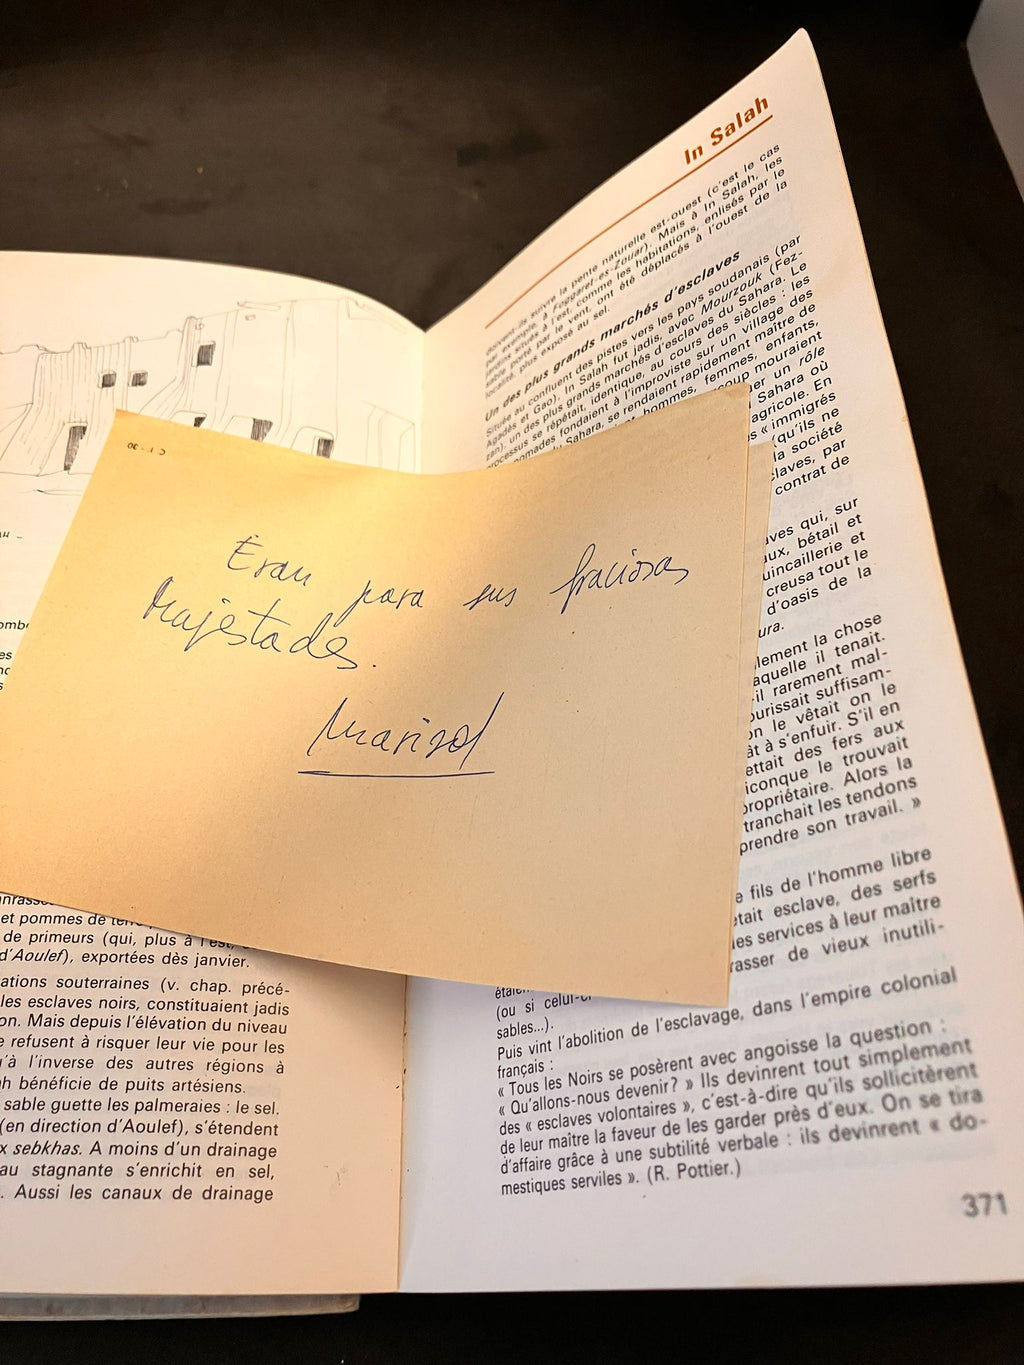 In Salah
doivent-ils suivre la pente naturelle est-ouest (c'est le cas
par exemple, à Foggaret-es-Zouar). Mais à In Salah, les
jardins situés à l'est, comme les habitations, enlisés par le
sable porté par le vent ont été déplacés à l'ouest de la
localité, plus exposé au sel.
Un des plus grands marchés d'esclaves
Située au confluent des pistes vers les pays soudanais (par
Agadès et Gao), In Salah fut jadis, avec Mourzouk (Fez-
zan), un des plus grands marchés d'esclaves du Sahara. Le
processus se répétait, identique, au cours des siècles : les
nomades fondaient à l'improviste sur un village des
Sahara, se rendaient rapidement maître de
hommes, femmes, enfants,
coup mouraient
uer un rôle
Sahara où
agricole. En
« immigrés
(qu'ils ne
la société
claves, par
contrat de
ves qui, sur
aux, bétail et
uincaillerie et
creusa tout le
d'oasis de la
ura.
lement la chose
aquelle il tenait.
-il rarement mal-
ourissait suffisam-
on le vêtait on le
ât à s'enfuir. S'il en
ettait des fers aux
iconque le trouvait
propriétaire. Alors la
tranchait les tendons
prendre son travail. »
e fils de l'homme libre
était esclave, des serfs
les services à leur maître
rasser de vieux inutili-
étaient
(ou si celui-ci
sables...).
Puis vint l'abolition de l'esclavage, dans l'empire colonial
français :
« Tous les Noirs se posèrent avec angoisse la question :
« Qu'allons-nous devenir? » Ils devinrent tout simplement
des « esclaves volontaires », c'est-à-dire qu'ils sollicitèrent
de leur maître la faveur de les garder près d'eux. On se tira
d'affaire grâce à une subtilité verbale : ils devinrent « do-
mestiques serviles ». (R. Pottier.)
371
C 1 - 30
Eran para sus graciosas
Majestades.
Marisol
et pommes de terre
de primeurs (qui, plus à l'est,
d'Aoulef), exportées dès janvier.
ations souterraines (v. chap. précé-
les esclaves noirs, constituaient jadis
on. Mais depuis l'élévation du niveau
e refusent à risquer leur vie pour les
u'à l'inverse des autres régions à
ah bénéficie de puits artésiens.
sable guette les palmeraies : le sel.
(en direction d'Aoulef), s'étendent
x sebkhas. A moins d'un drainage
au stagnante s'enrichit en sel,
. Aussi les canaux de drainage